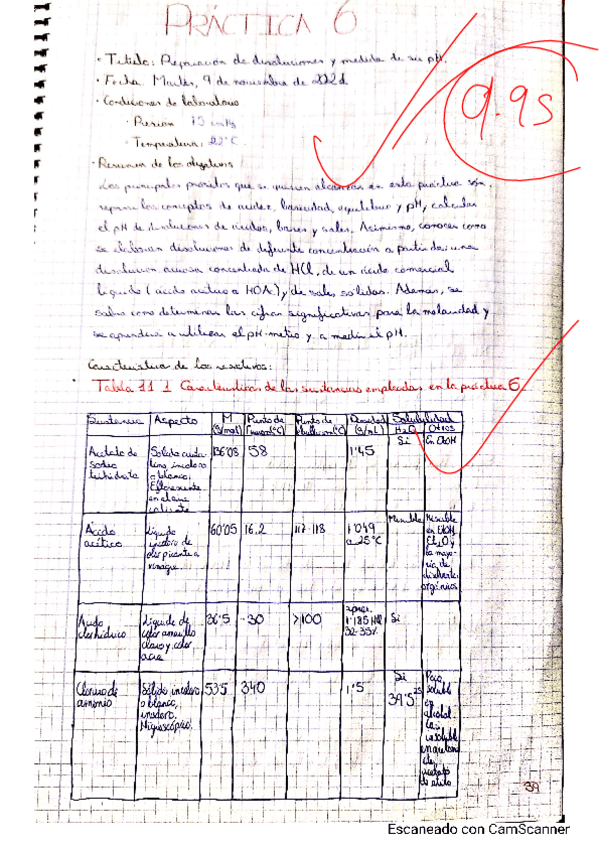 PRÁCTICA 6
· Título: Preparación de disoluciones y medida de su pH.
· Fecha: Martes, 9 de noviembre de 2021
· Condiciones de laboratorio
· Presión
· Temperatura: 22°C
9.95
· Resumen de los objetivos
Los principales que se quieren alcanzar en esta práctica son:
los conceptos de acidez, basicidad, equilibrio y pH, calcular
el pH de disoluciones de ácidos, bases y sales. Asimismo, conocer como
se elaboran disoluciones de diferente concentración a partir de: una
disolución acuosa concentrada de HCl, de un ácido comercial
líquido (ácido acético o HOAc) y de sales sólidas. Además, se
sabrá como determinar las cifras significativas para la molaridad y
se aprenderá a utilizar el pH-metro y a medir el pH.
Características de los reactivos:
Tabla 11.1 Características de las sustancias empleadas en la práctica 6.
Sustancia Aspecto M (g/mol) Punto de fusión (°C) Punto de ebullición (°C) Densidad (g/mL) Solubilidad
H₂O Otros
Acetato de sodio trihidrato Sólido incoloro o blanco, Eflorescente en el aire caliente 136'08 58 1'45 Si En EtOH
Ácido acético Líquido incoloro de olor picante a vinagre 60'05 16.2 117-118 1'049 a 25°C Miscible Miscible en EtOH, Et₂O y la mayoría de disolventes orgánicos
Ácido clorhídrico Líquido de color amarillo claro y olor acre 36'5 -30 >100 aprox. 1'185 32-35% Si
Cloruro de amonio Sólido incoloro o blanco, inodoro, Higroscópico. 53'5 340 1'5 Si 39'5 Poco soluble en alcohol. Casi insoluble en acetato de etilo
39
Escaneado con CamScanner